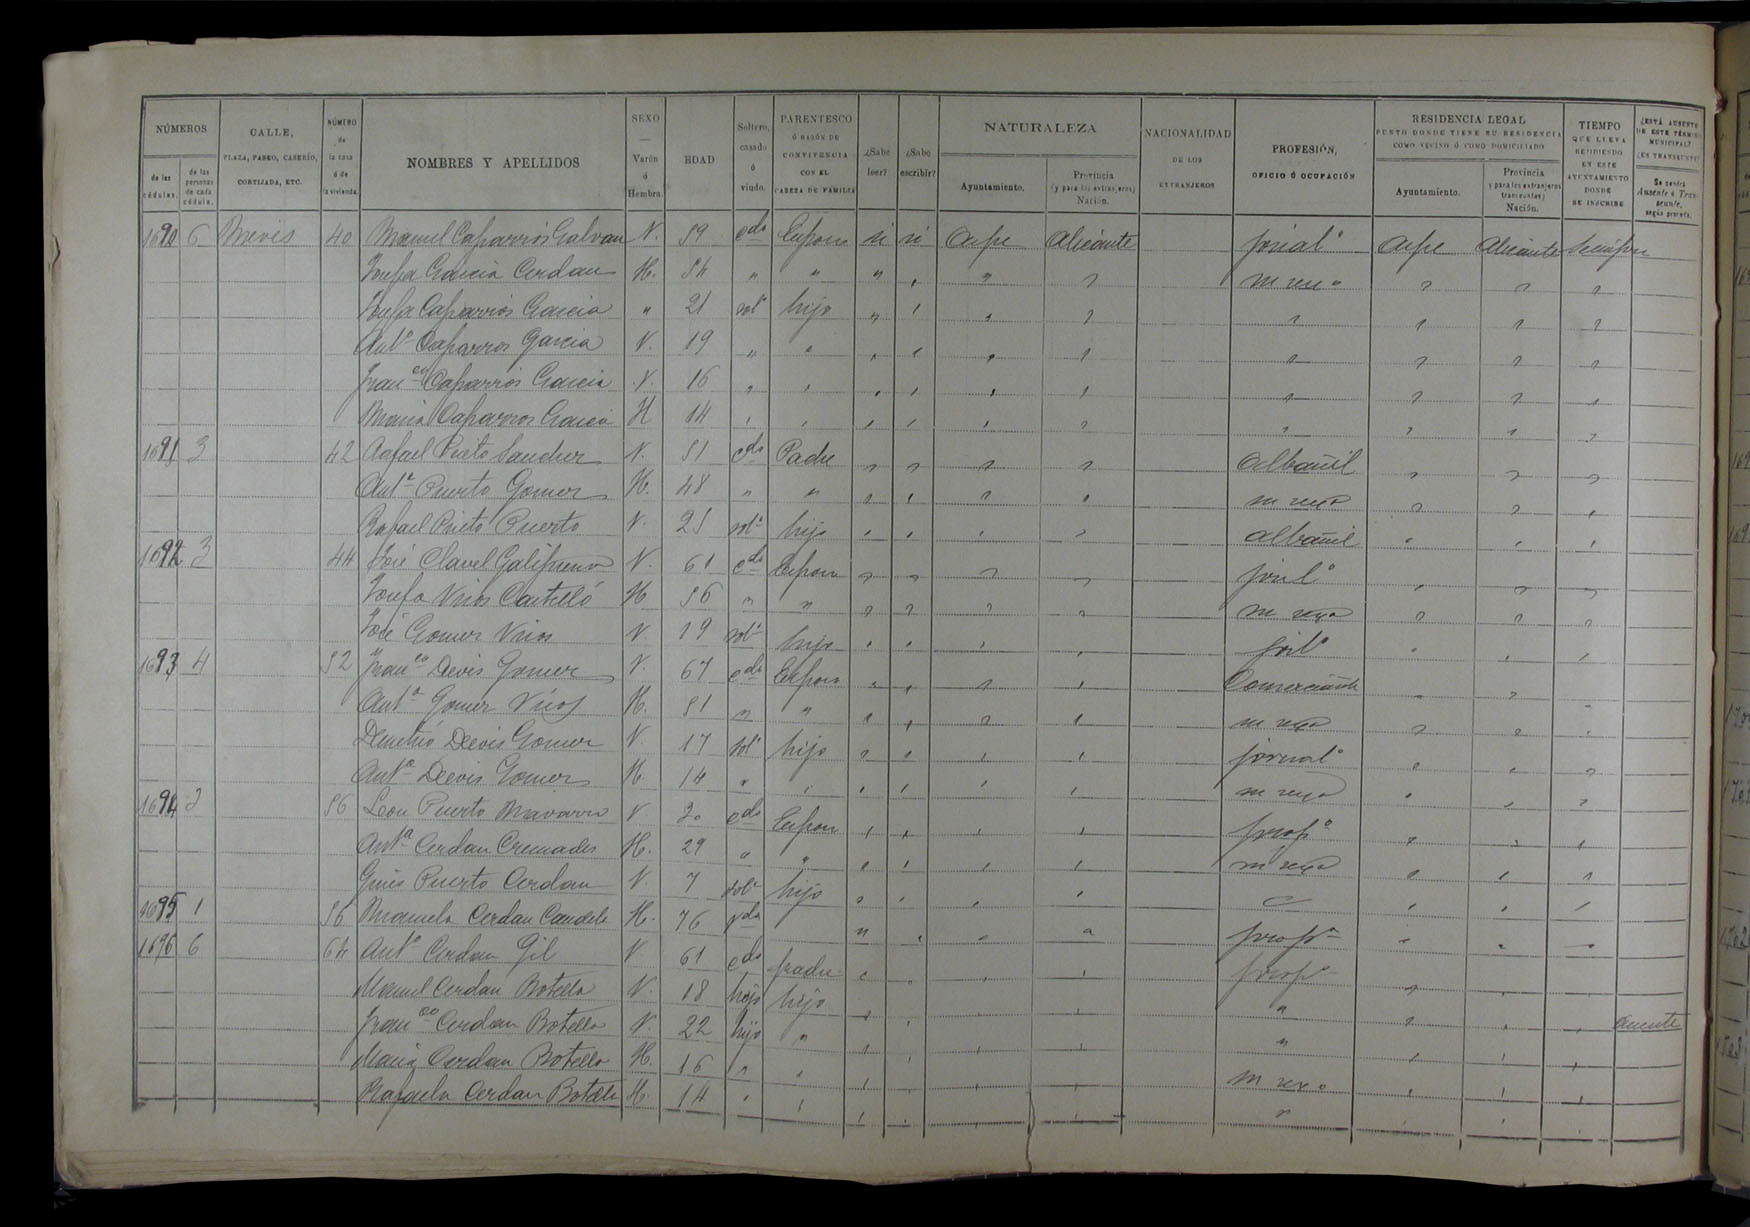 NÚMEROS
de las cédulas.
de las personas de cada cédula.
CALLE,
PLAZA, PASEO, CASERÍO,
CORTIJADA, ETC.
NÚMERO
de
la casa
ó de
la vivienda.
NOMBRES Y APELLIDOS
SEXO
—
Varón
ó
Hembra.
EDAD
Soltero,
casado
ó
viudo.
PARENTESCO
Ó RAZÓN DE
CONVIVENCIA
CON EL
CABEZA DE FAMILIA
¿Sabe leer?
¿Sabe escribir?
NATURALEZA
Ayuntamiento.
Provincia
(y para los extranjeros)
Nación.
NACIONALIDAD
DE LOS
EXTRANJEROS
PROFESIÓN,
OFICIO Ó OCUPACIÓN
RESIDENCIA LEGAL
PUNTO DONDE TIENE SU RESIDENCIA
COMO VECINO Ó COMO DOMICILIADO
Ayuntamiento.
Provincia
y para los extranjeros
transeuntes)
Nación.
TIEMPO
QUE LLEVA
RESIDIENDO
EN ESTE
AYUNTAMIENTO
DONDE
SE INSCRIBE
¿ESTÁ AUSENTE
DE ESTE TÉRMINO
MUNICIPAL?
¿ES TRANSEUNTE?
Se pondrá
Ausente ó Transeunte,
según proceda.
1690 6 40 Manuel Caparrós Galvan V. 59 cdo Esposo si si Aspe Alicante jornalo Aspe Alicante Siempre
Josefa Garcia Cerdan H. 54 " " " " " " " " "
Josefa Caparrós Garcia " 21 sola hijo " " " " " " " "
Anto Caparros Garcia V. 19 " " " " " " " " " "
Franco Caparrós Garcia V. 16 " " " " " " " " " "
Maria Caparros Garcia H 14 " " " " " " " " " "
1691 3 42 Rafael Prieto Sanchez V. 51 cdo Padre " " " " Albañil " " "
Anta Puerto Gomez H. 48 " " " " " " " " "
Rafael Prieto Puerto V. 21 solo hijo " " " " albañil " " "
1692 3 44 José Clavel V. 61 cdo Esposo " " " " jorlo " " "
Josefa Castelló H 56 " " " " " " " " "
José Gomez V. 19 solo hijo " " " " " " "
1693 4 52 Franco Devis Gomez V. 67 cdo Esposo " " " " Comerciante " "
Anta Gomez H. 51 " " " " " " " " "
Demetrio Devis Gomez V. 17 solo hijo " " " " jornalo " " "
Anta Devis Gomez H. 14 " " " " " " " " "
1694 3 56 Leon Puerto Navarro V 30 cdo Esposo " " " " propo " " "
Anta Cerdan Cremades H. 29 " " " " " " " " "
Gines Puerto Cerdan V. 7 solo hijo " " " " " " "
1695 1 56 Manuela Cerdan Candela H. 76 vda " " " " propa " " "
1696 6 64 Anto Cerdan Gil V 61 cdo padre " " " " propo " " "
Manuel Cerdan Botella V. 18 hijo hijo " " " " " " " "
Franco Cerdan Botella V. 22 hijo " " " " " " " " " Ausente
Maria Cerdan Botella H. 16 " " " " " " " " "
Rafaela Cerdan Botella H. 14 " " " " " " " " " "